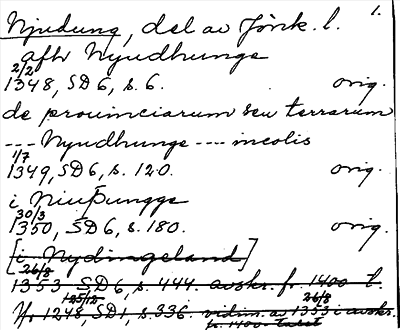 Njudung, del av Jönk. l. 1.
afh Nyudhunge
2/2
1348, SD 6, s. 6. orig.
de prouinciarum seu terrarum
--- Nyudhunge ---- incolis
1/7
1349, SD 6, s. 120. orig.
i Niuþungge
30/3
1350, SD 6, s. 180. orig.
[i Nydingeland]
26/8
1353 SD 6, s. 444. avskr. fr. 1400 t.
125/12 26/8
Yr 1248, SD 1, s. 336. vidim. av 1353 i avskr.
fr. 1400-talet